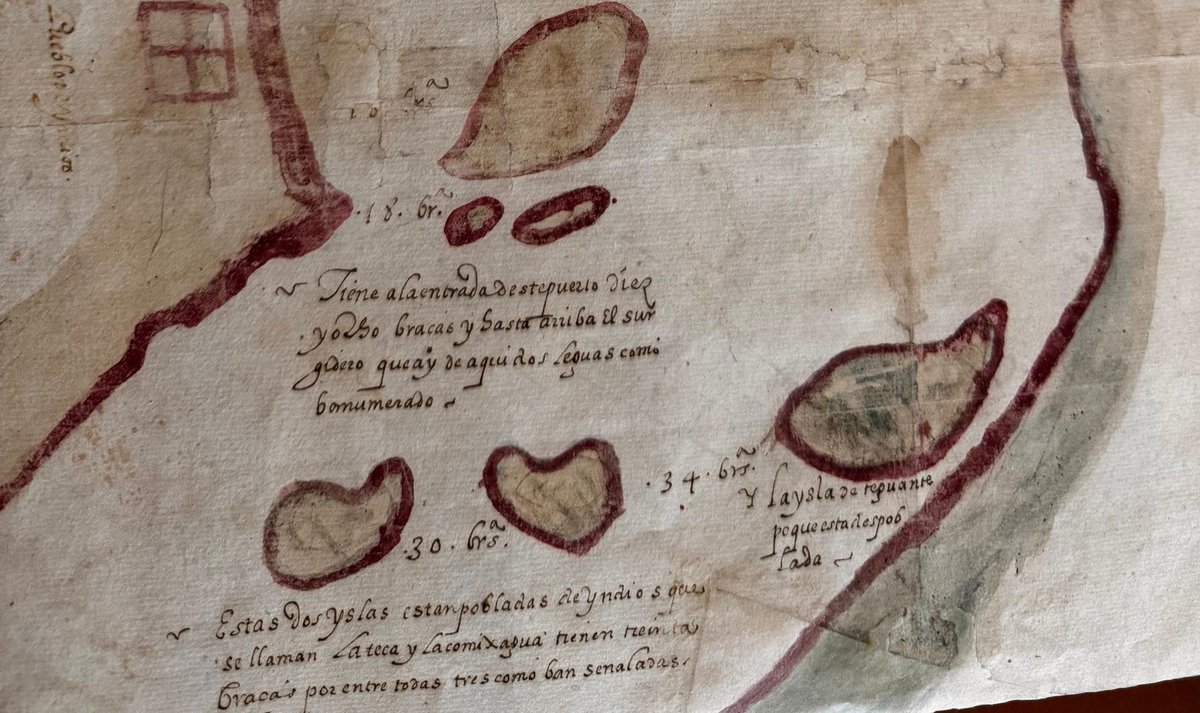 Pueblos y
10 brˢᵃ
.18. brᵃ
Tiene a la entrada deste puerto diez
y ocho bracas y hasta arriba El sur
gidero que ay de aqui dos leguas como
ba numerado
.34. brsᵃ.
Y la ysla de teguante
peque esta despob
lada
.30. brsᵃ.
Estas dos yslas estan pobladas de yndios que
se llaman La teca y la comixagua tienen treinta
bracas por entre todas tres como ban señaladas.